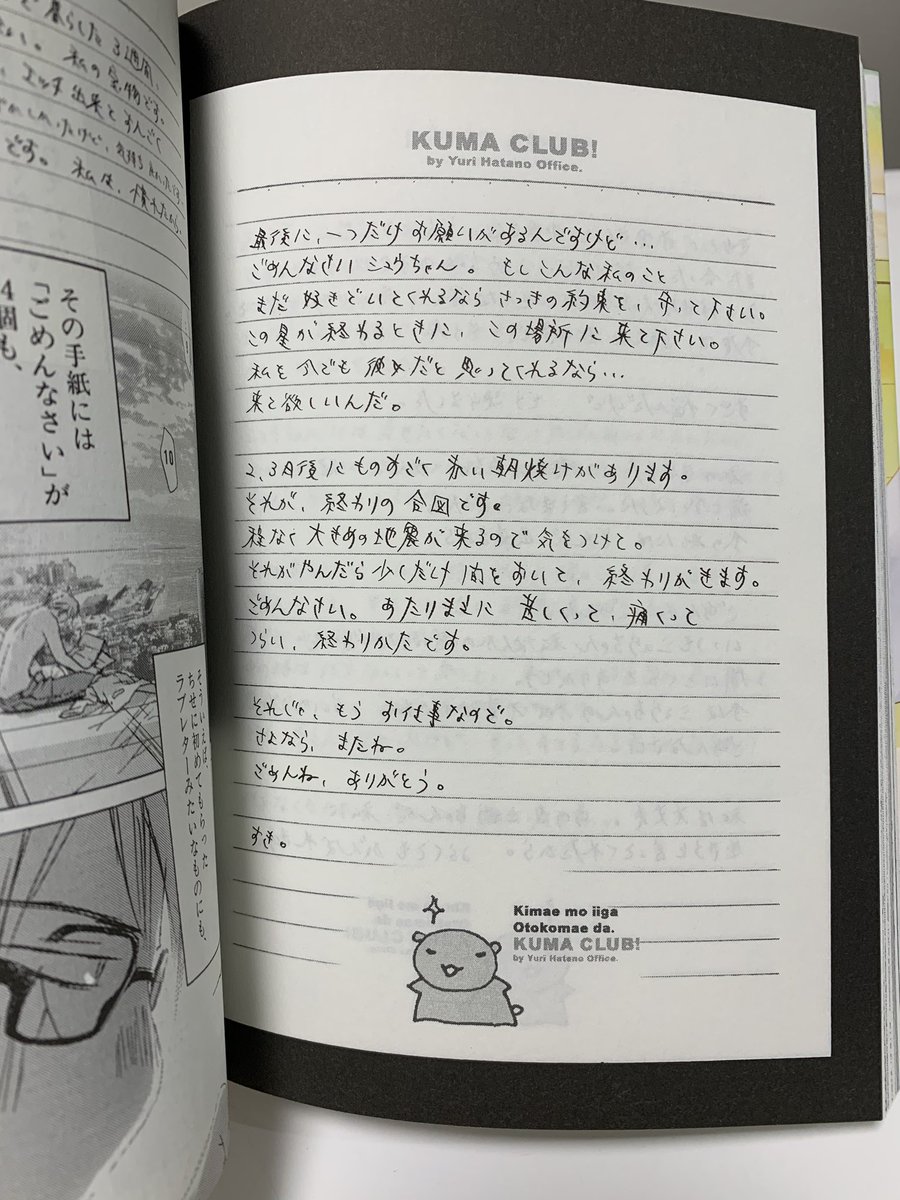 KUMA CLUB!
by Yuri Hatano Office.
最後に、一つだけお願いがあるんですけど…
ごめんなさいシュウちゃん。もしこんな私のこと
まだ好きでいてくれるならさっきの約束を、守って下さい。
この星が終わるときに、この場所に来て下さい。
私を今でも彼女だと思ってくれるなら…
来て欲しいんだ。
2、3日後にものすごく赤い朝焼けがあります。
それが、終わりの合図です。
程なく大きめの地震が来るので気をつけて。
それがやんだら少しだけ間をおいて、終わりがきます。
ごめんなさい。あたりまえに苦しくって、痛くって
つらい、終わりかたです。
それじゃ、もうお仕事なので。
さよなら、またね。
ごめんね、ありがとう。
すき。
Kimae mo iiga
Otokomae da.
KUMA CLUB!
by Yuri Hatano Office.
暮らした3週間、
私の宝物です。
です。私は、慣れたから、
その手紙には
「ごめんなさい」が
4個も、
10
そういえば、
ちせに初めてもらった
ラブレターみたいなものにも、